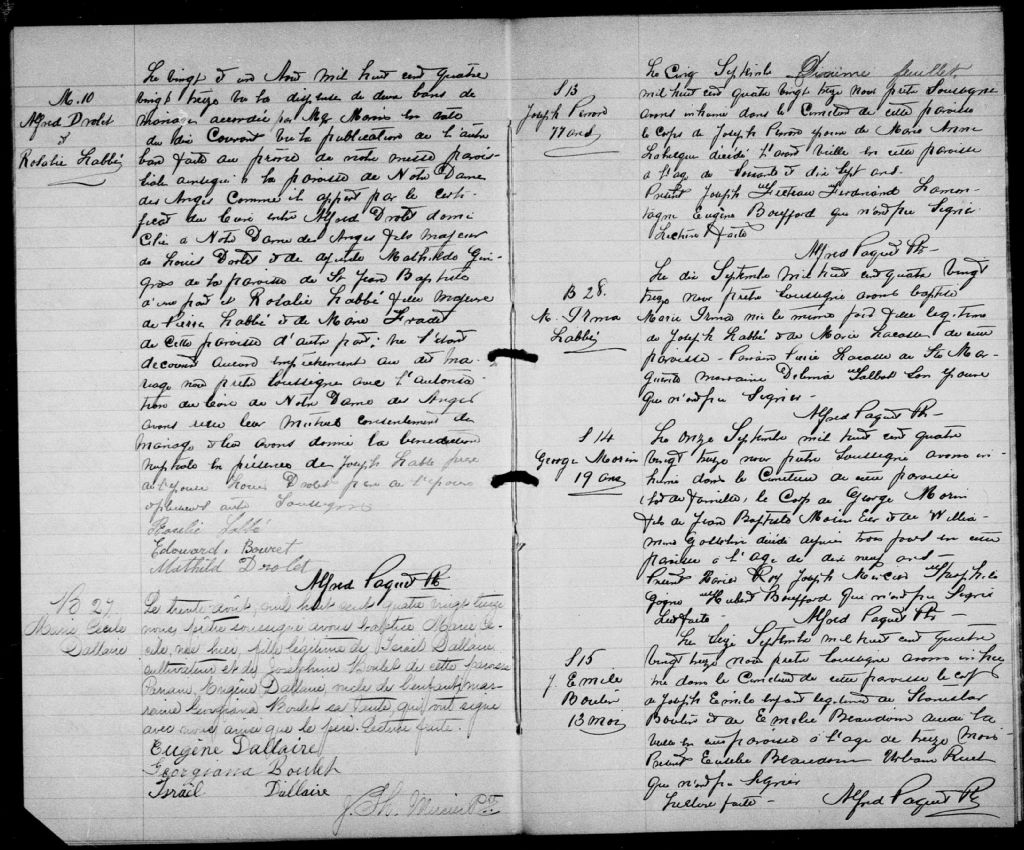 M. 10
Alfred Drolet
&
Rosalie Labbé
Le vingt et un Août mil huit cent quatre
vingt treize vu la dispense de deux bans de
mariage accordée par Mgr Marois en date
du dix Courant vu la publication de l'autre
ban faite au prône de notre messe parois-
siale ainsi qu'à la paroisse de Notre Dame
des Anges Comme il appert par le certi-
ficat du Curé entre Alfred Drolet domi-
cilié à Notre Dame des Anges fils majeur
de Louis Drolet et de Mathilde Gin-
gras de la paroisse de St Jean Baptiste
d'une part et Rosalie Labbé fille majeure
de Pierre Labbé et de Marie Fradet
de Cette paroisse d'autre part; ne s'étant
découvert aucun empêchement au dit ma-
riage nous prêtre soussigné avec l'autorisa-
tion du Curé de Notre Dame des Anges
avons reçu leur mutuel consentement de
mariage et leur avons donné la bénédiction
nuptiale en présence de Joseph Labbé frère
de l'épouse Louis Drolet père de l'époux
et plusieurs autres Soussignés
Rosalie Labbé
Edouard Bouret
Mathild Drolet
Alfred Paquet Ptr
B 27
Marie Cecile
Dallaire
Le trente août, mil huit cent quatre vingt treize
nous, prêtre soussigné avons baptisé Marie Cé-
cile, née hier, fille légitime de Israël Dallaire
cultivateur et de Joséphine Boulet de cette paroisse
Parrain, Eugène Dallaire, oncle de l'enfant, mar-
raine Georgiana Boulet sa tante qui ont signé
avec nous ainsi que le père. Lecture faite.
Eugène Dallaire
Georgiana Boulet
Israël Dallaire
J. Th. Mercier Ptr
Dixième feuillet
S 13
Joseph Perron
77 ans
Le Cinq Septembre
mil huit cent quatre vingt treize nous prêtre Soussigné
avons inhumé dans le Cimetière de cette paroisse
le Corps de Joseph Perron époux de Marie Anne
Labecque décédé l'avant veille en cette paroisse
à l'age de Soixante et dix Sept ans.
Présents Joseph Ferdinand Lamon-
tagne Eugène Boufford qui n'ont pu Signer
Lecture faite
Alfred Paquet Ptr
B 28.
M. Irma
Labbé
Le dix Septembre mil huit cent quatre vingt
treize nous prêtre Soussigné avons baptisé
Marie Irma née le même jour fille légitime
de Joseph Labbé et de Marie Lacasse de cette
paroisse - Parrain Pierre Lacasse de Ste Mar-
guerite marraine Delvina Talbot son épouse
qui n'ont pu Signer -
Alfred Paquet Ptr
S 14
George Morin
19 ans
Le onze Septembre mil huit cent quatre
vingt treize nous prêtre Soussigné avons in-
humé dans le Cimetière de cette paroisse
(lot de famille), le Corps de George Morin
fils de Jean Baptiste Morin Ecr et de Willia-
mine décédé depuis trois jours en cette
paroisse à l'age de dix neuf ans -
Présents Roy Joseph Mercier
Hubert Boufford qui n'ont pu Signer
Lect faite - Alfred Paquet Ptr
S 15
J. Emile
Boutin
13 mois
Le Septembre mil huit cent quatre
vingt treize nous prêtre Soussigné avons inhu-
mé dans le Cimetière de cette paroisse le corps
de Joseph Emile enfant légitime de Stanislas
Boutin et de Emelie Beaudoin décédé la
veille en cette paroisse à l'age de treize mois
Présents Eusèbe Beaudoin Urbain Ruel
qui n'ont pu Signer
Lecture faite - Alfred Paquet Ptr